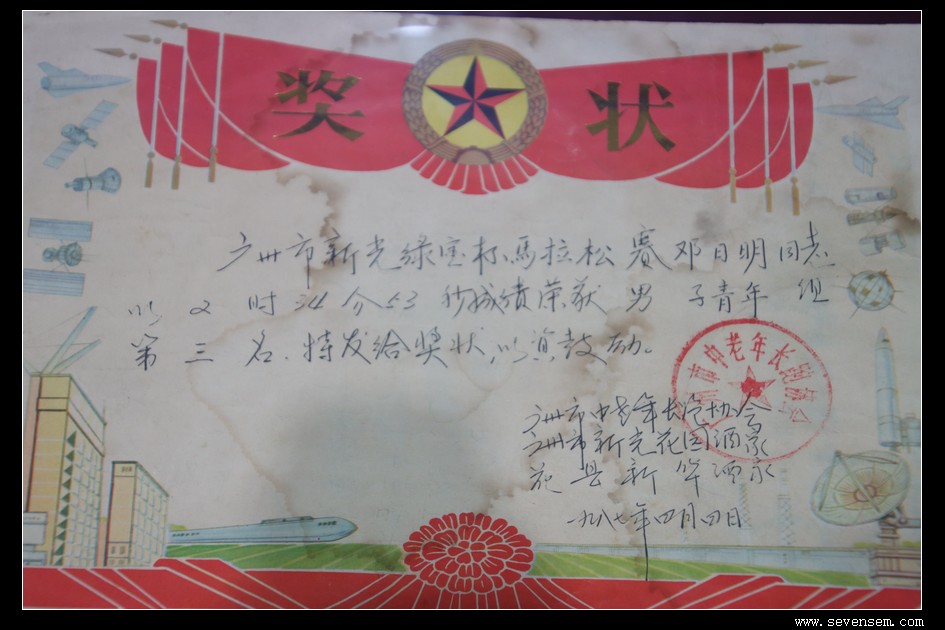 奖状
广州市新光绿宝杯马拉松赛邓日明同志
以2时34分53秒成绩荣获男子青年组
第三名.特发给奖状,以资鼓励。
广州市中老年长跑协会
广州市新光花园酒家
花县新华酒家
一九八七年四月四日
广州市中老年长跑协会
www.sevensem.com